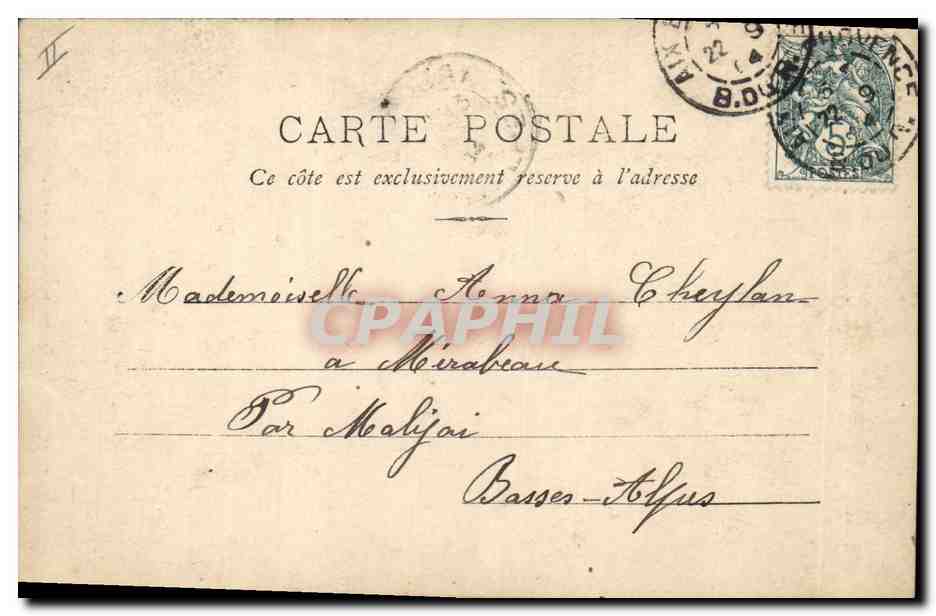 II
AIX
22 9
04
B. DU R.
PROVENCE
22 9
5
POSTES
CARTE POSTALE
Ce côte est exclusivement reserve à l'adresse
Mademoiselle Anna Cheylan
CPAPHIL
a Mirabeau
Par Malijai
Basses-Alpes